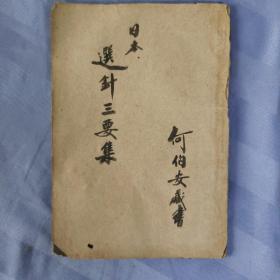 日本
選針三要集
何伯安藏書